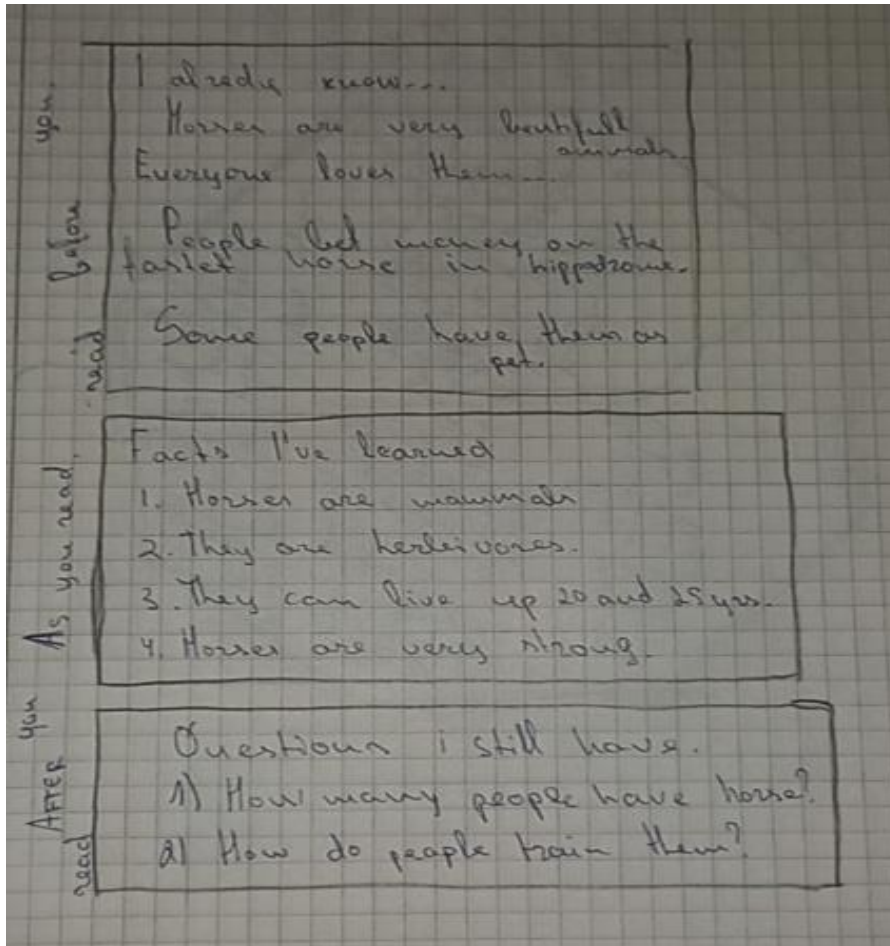 before you read
I alredy know...
Horses are very beutifull
animals.
Everyone loves them...
People bet money on the
fastet horse in hippodrome.
Some people have them as
pet.
As you read.
Facts I've learned
1. Horses are mammals
2. They are herbivores.
3. They can live up 20 and 25 yrs.
4. Horses are very strong.
AFTER you read
Questions i still have.
1) How many people have horse?
2) How do people train them?